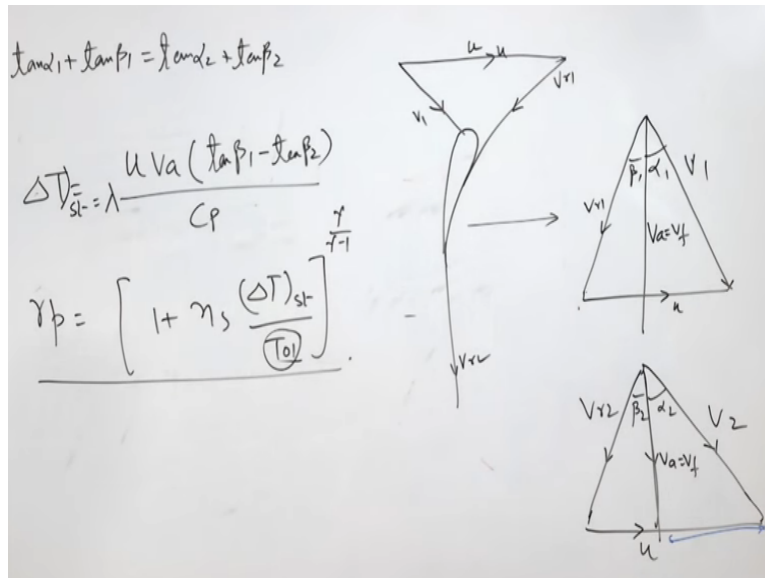 tanα1 + tanβ1 = tanα2 + tanβ2
ΔT)st = λ U Va (tanβ1 - tanβ2) / Cp
rp = [1 + ηs (ΔT)st / T01]^(γ/γ-1).
u u
V1 Vr1
Vr2
β1 α1
Vr1 V1
Va=Vf
u
β2 α2
Vr2 V2
Va=Vf
u